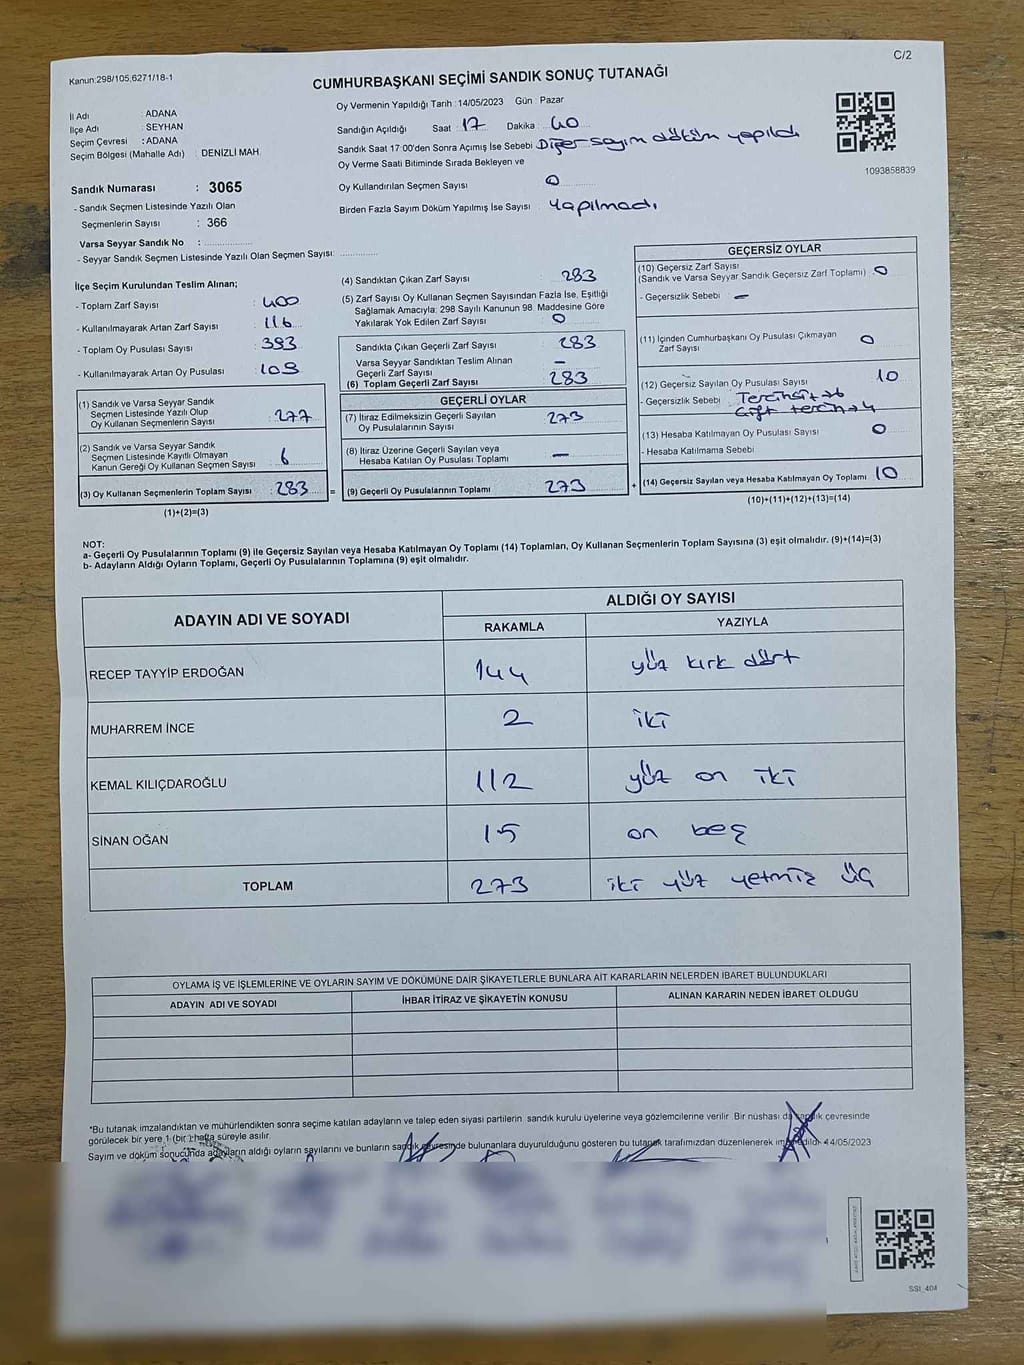 C/2
Kanun:298/105,6271/18-1
CUMHURBAŞKANI SEÇİMİ SANDIK SONUÇ TUTANAĞI
İl Adı : ADANA
İlçe Adı : SEYHAN
Seçim Çevresi : ADANA
Seçim Bölgesi (Mahalle Adı) : DENİZLİ MAH.
Sandık Numarası : 3065
- Sandık Seçmen Listesinde Yazılı Olan
Seçmenlerin Sayısı : 366
Varsa Seyyar Sandık No :
- Seyyar Sandık Seçmen Listesinde Yazılı Olan Seçmen Sayısı:
Oy Vermenin Yapıldığı Tarih :14/05/2023 Gün : Pazar
Sandığın Açıldığı Saat : 17 Dakika : 40
Sandık Saat 17:00'den Sonra Açımış İse Sebebi : Diğer sayım döküm yapıldı
Oy Verme Saati Bitiminde Sırada Bekleyen ve
Oy Kullandırılan Seçmen Sayısı 0
Birden Fazla Sayım Döküm Yapılmış İse Sayısı : Yapılmadı.
1093858839
İlçe Seçim Kurulundan Teslim Alınan;
- Toplam Zarf Sayısı : 400
- Kullanılmayarak Artan Zarf Sayısı : 116
- Toplam Oy Pusulası Sayısı : 393
- Kullanılmayarak Artan Oy Pusulası : 109
(1) Sandık ve Varsa Seyyar Sandık
Seçmen Listesinde Yazılı Olup
Oy Kullanan Seçmenlerin Sayısı : 277
(2) Sandık ve Varsa Seyyar Sandık
Seçmen Listesinde Kayıtlı Olmayan
Kanun Gereği Oy Kullanan Seçmen Sayısı : 6
(3) Oy Kullanan Seçmenlerin Toplam Sayısı : 283 =
(1)+(2)=(3)
(4) Sandıktan Çıkan Zarf Sayısı 283
(5) Zarf Sayısı Oy Kullanan Seçmen Sayısından Fazla İse, Eşitliği
Sağlamak Amacıyla; 298 Sayılı Kanunun 98. Maddesine Göre
Yakılarak Yok Edilen Zarf Sayısı 0
Sandıkta Çıkan Geçerli Zarf Sayısı 283
Varsa Seyyar Sandıktan Teslim Alınan
Geçerli Zarf Sayısı —
(6) Toplam Geçerli Zarf Sayısı 283
GEÇERLİ OYLAR
(7) İtiraz Edilmeksizin Geçerli Sayılan
Oy Pusulalarının Sayısı 273
(8) İtiraz Üzerine Geçerli Sayılan veya
Hesaba Katılan Oy Pusulası Toplamı —
(9) Geçerli Oy Pusulalarının Toplamı 273 +
GEÇERSİZ OYLAR
(10) Geçersiz Zarf Sayısı
(Sandık ve Varsa Seyyar Sandık Geçersiz Zarf Toplamı) 0
- Geçersizlik Sebebi —
(11) İçinden Cumhurbaşkanı Oy Pusulası Çıkmayan
Zarf Sayısı 0
(12) Geçersiz Sayılan Oy Pusulası Sayısı 10
- Geçersizlik Sebebi Tercihsiz → 6
Çift tercih → 4
(13) Hesaba Katılmayan Oy Pusulası Sayısı 0
- Hesaba Katılmama Sebebi
(14) Geçersiz Sayılan veya Hesaba Katılmayan Oy Toplamı 10
(10)+(11)+(12)+(13)=(14)
NOT:
a- Geçerli Oy Pusulalarının Toplamı (9) ile Geçersiz Sayılan veya Hesaba Katılmayan Oy Toplamı (14) Toplamları, Oy Kullanan Seçmenlerin Toplam Sayısına (3) eşit olmalıdır. (9)+(14)=(3)
b- Adayların Aldığı Oyların Toplamı, Geçerli Oy Pusulalarının Toplamına (9) eşit olmalıdır.
ADAYIN ADI VE SOYADI ALDIĞI OY SAYISI
RAKAMLA YAZIYLA
RECEP TAYYİP ERDOĞAN 144 yüz kırk dört
MUHARREM İNCE 2 iki
KEMAL KILIÇDAROĞLU 112 yüz on iki
SİNAN OĞAN 15 on beş
TOPLAM 273 iki yüz yetmiş üç
OYLAMA İŞ VE İŞLEMLERİNE VE OYLARIN SAYIM VE DÖKÜMÜNE DAİR ŞİKAYETLERLE BUNLARA AİT KARARLARIN NELERDEN İBARET BULUNDUKLARI
ADAYIN ADI VE SOYADI İHBAR İTİRAZ VE ŞİKAYETİN KONUSU ALINAN KARARIN NEDEN İBARET OLDUĞU
*Bu tutanak imzalandıktan ve mühürlendikten sonra seçime katılan adayların ve talep eden siyasi partilerin sandık kurulu üyelerine veya gözlemcilerine verilir. Bir nüshası da sandık çevresinde
görülecek bir yere 1 (bir ) hafta süreyle asılır.
Sayım ve döküm sonucunda adayların aldığı oyların sayılarını ve bunların sandık çevresinde bulunanlara duyurulduğunu gösteren bu tutanak tarafımızdan düzenlenerek imzalandı. 14/05/2023
SSI_404